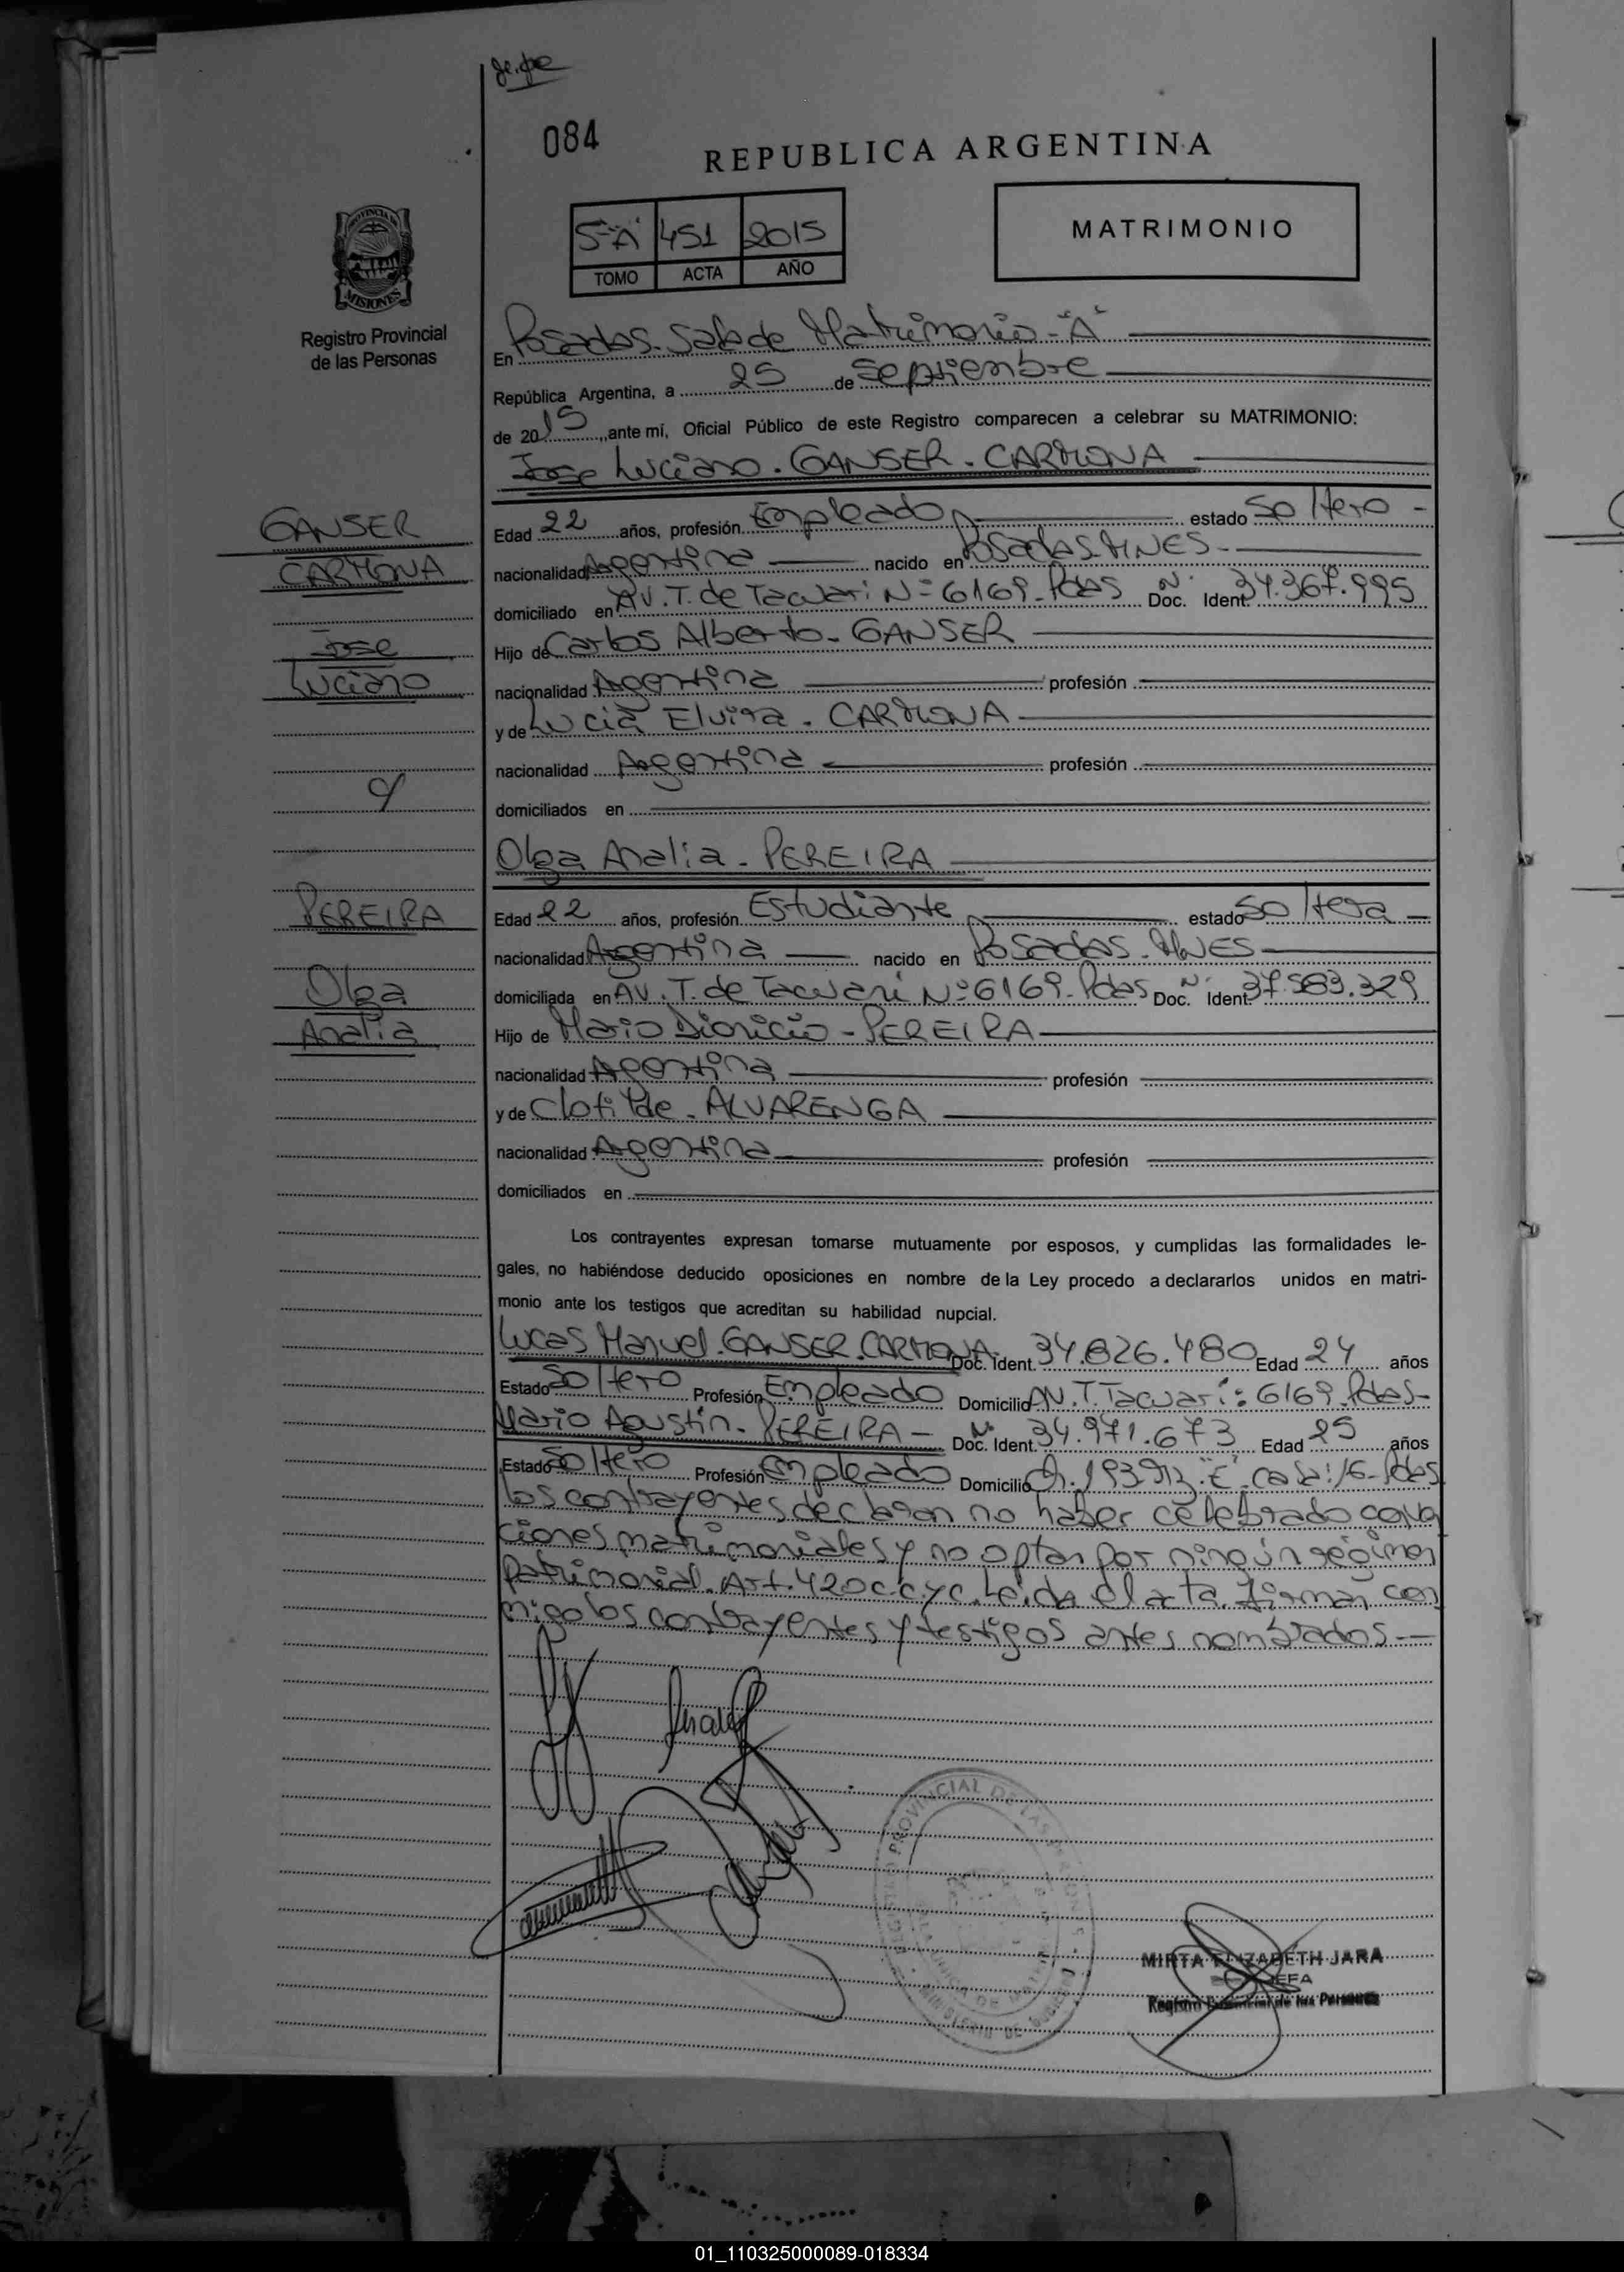 084
REPUBLICA ARGENTINA
5-"A" 451 2015
TOMO ACTA AÑO
MATRIMONIO
PROVINCIA DE
MISIONES
Registro Provincial
de las Personas
En Posadas. Sala de Matrimonio-"A"
República Argentina, a 25 de Septiembre
de 2015, ante mí, Oficial Público de este Registro comparecen a celebrar su MATRIMONIO:
Jose Luciano. GANSER. CARMONA
GANSER
CARMONA
Jose
Luciano
Edad 22 años, profesión Empleado estado Soltero -
nacionalidad Argentina nacido en Posadas. MNES-
domiciliado en AV. T. de Tacuari Nº 6169. Pdas Doc. Nº Ident. 34.367.995
Hijo de Carlos Alberto. GANSER
nacionalidad Argentina profesión
y de Lucia Elvira. CARMONA
nacionalidad Argentina profesión
domiciliados en
Olga Analia. PEREIRA
PEREIRA
Olga
Analia
Edad 22 años, profesión Estudiante estado Soltera -
nacionalidad Argentina nacido en Posadas. MNES
domiciliada en AV. T. de Tacuari Nº 6169. Pdas Doc. Nº Ident. 37.583.329
Hijo de Mario Dionicio - PEREIRA
nacionalidad Argentina profesión
y de Clotilde. ALVARENGA
nacionalidad Argentina profesión
domiciliados en
Los contrayentes expresan tomarse mutuamente por esposos, y cumplidas las formalidades le-
gales, no habiéndose deducido oposiciones en nombre de la Ley procedo a declararlos unidos en matri-
monio ante los testigos que acreditan su habilidad nupcial.
Lucas Manuel. GANSER. CARMONA. Doc. Ident. 34.826.480 Edad 24 años
Estado Soltero Profesión Empleado Domicilio AV. T. Tacuari: 6169. Pdas-
Mario Agustín. PEREIRA - Doc. Nº Ident. 34.971.673 Edad 25 años
Estado Soltero Profesión Empleado Domicilio Ch. 193 "E" casa: 16- Pdas
los contrayentes declaran no haber celebrado conven
ciones matrimoniales y no optan por ningún régimen
Patrimonial. Art. 420 c.c.y c. Leida el acta firman con
migo los contrayentes y testigos antes nombrados.-
MIRTA ELIZABETH JARA
JEFA
Registro Provincial de las Personas
01_110325000089-018334